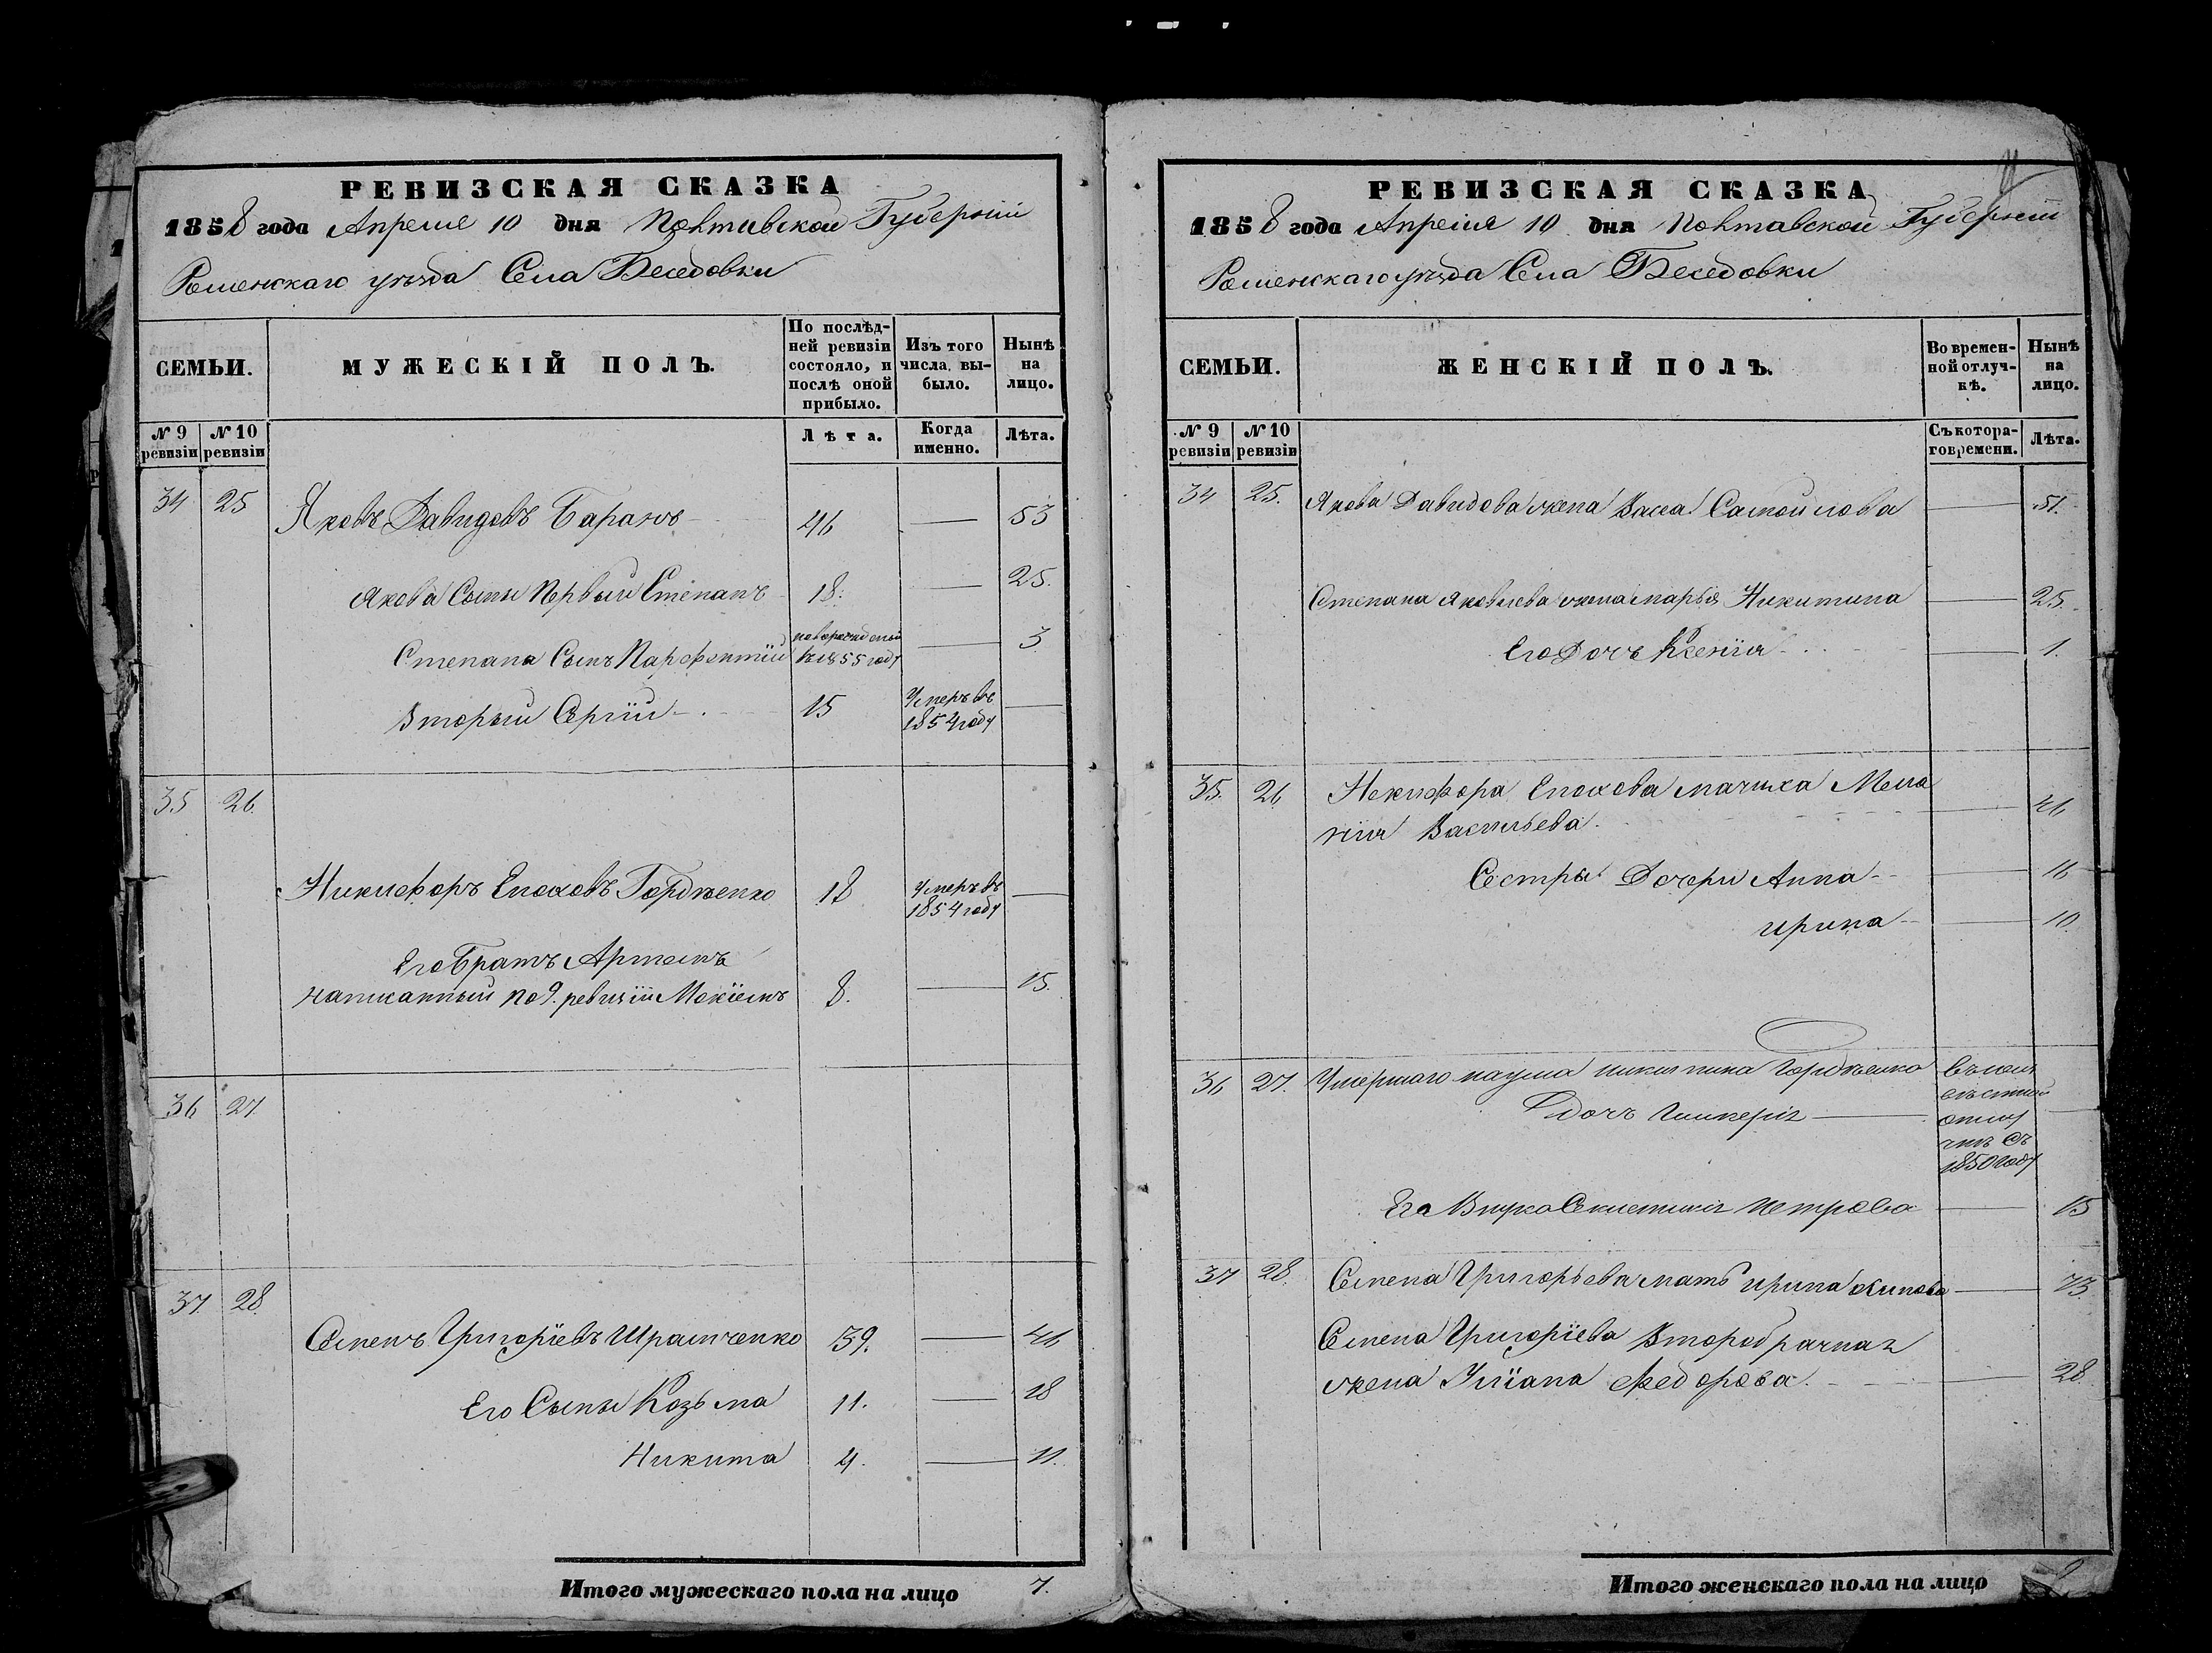 РЕВИЗСКАЯ СКАЗКА
1858 года Апреля 10 дня Полтавской Губернiи
Роменскаго уѣзда Села Беседовки
СЕМЬИ.
МУЖЕСКІЙ ПОЛЪ.
По послѣд-
ней ревизіи
состояло, и
послѣ оной
прибыло.
Изъ того
числа вы-
было.
Нынѣ
на
лицо.
№ 9 ревизіи
№ 10 ревизіи
Лѣта.
Когда именно.
Лѣта.
34 25 Яковъ Давидовъ Баранъ 46 — 53
Якова Сыны Первый Степанъ 18. — 25.
Степана Сынъ Парфентiй новорожденный въ 1855 году — 3
Вторый Сергiй 15 Умеръ въ 1854 году —
35 26
Никифоръ Епоховъ Гордѣенко 18 умеръ въ 1854 году —
Его Братъ Артемъ
написанный по 9. ревизiи Мокiемъ 8. — 15.
36 27
37 28
Семенъ Григорiевъ Шрамченко 39. — 46
Его Сыны Козьма 11. — 18
Никита 4. — 11.
Итого мужескаго пола на лицо 7.
РЕВИЗСКАЯ СКАЗКА
1858 года Апреля 10 дня Полтавской Губернiи
Роменскаго уѣзда Села Беседовки
СЕМЬИ.
ЖЕНСКІЙ ПОЛЪ.
Во времен-
ной отлуч-
кѣ.
Нынѣ
на
лицо.
№ 9 ревизіи
№ 10 ревизіи
Съ котора-
го времени.
Лѣта.
34 25. Якова Давидова жена Васса Самойлова — 51.
Степана Яковлева жена марья Никитина — 25.
Его Дочь Ксенiя — 1.
35. 26 Некифора Епохова мачиха Мела
нiя Васильева. — 46
Сестры Дочери Анна — 16
ирина — 10
36 27. Умершаго наума никитина Гордѣенко
дочь Гликерiя — въ неиз
вѣстной
отлу
чкѣ съ
1850 году
Его Внука петрова — 15
37 28. Семена Григорьева мать ирина — 73
Семена Григорiева Второбрачная
жена Улiана Федорова. — 28
Итого женскаго пола на лицо